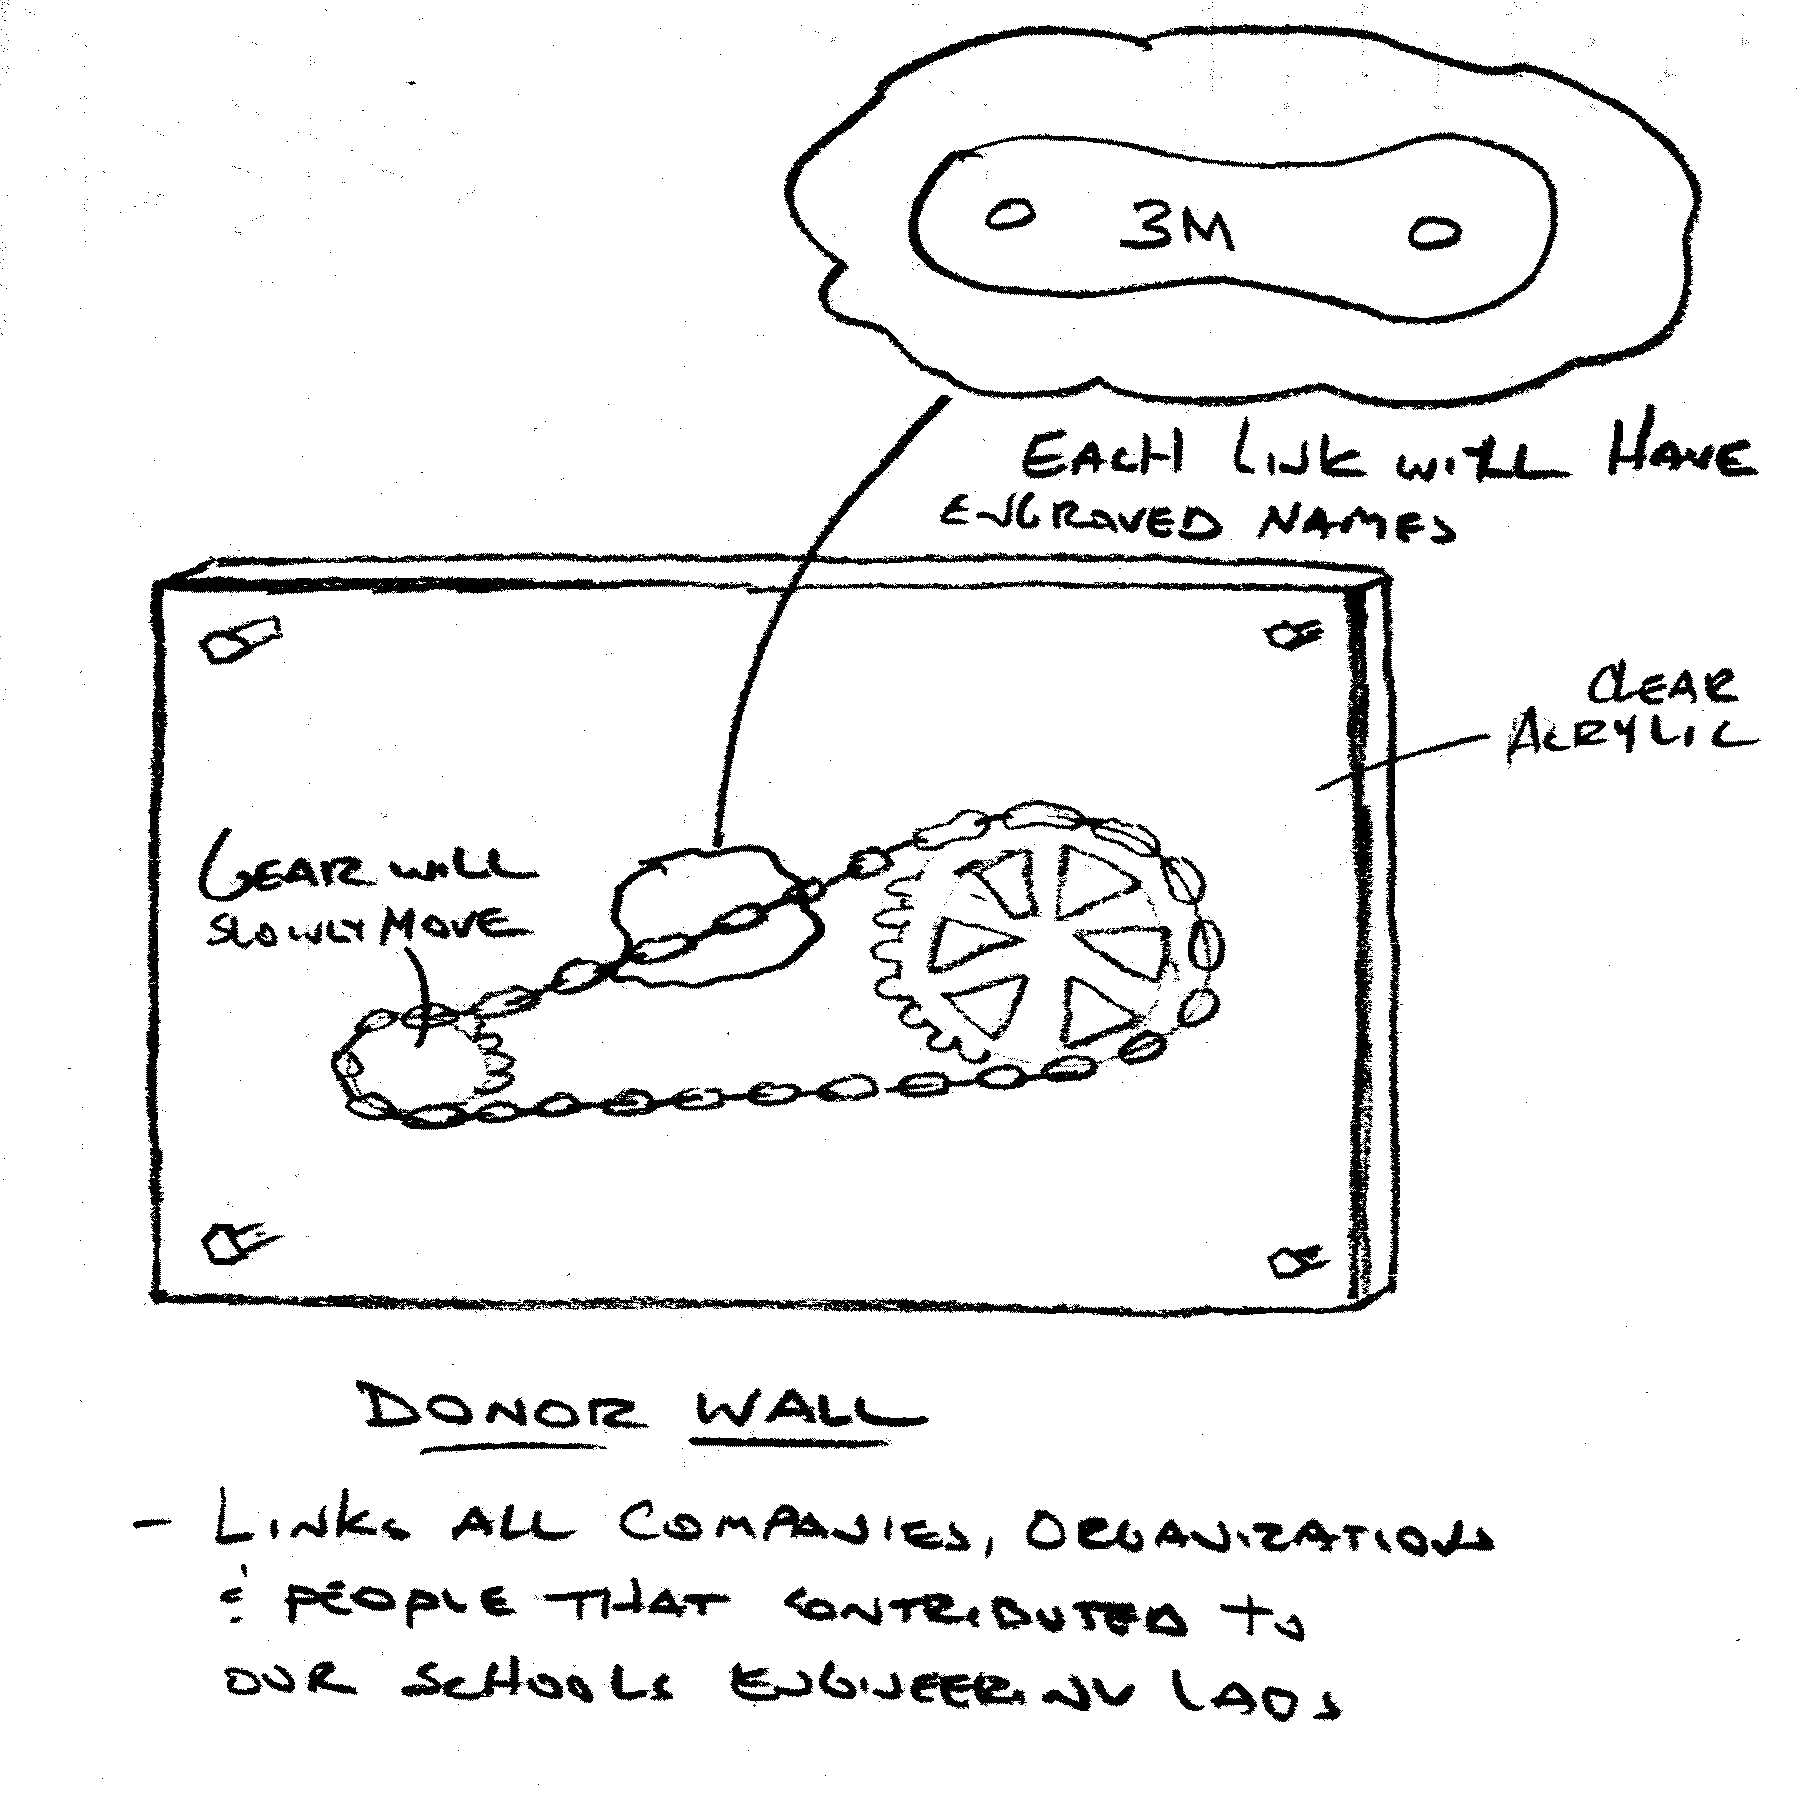 3M
EACH LINK WILL HAVE
ENGRAVED NAMES
CLEAR
ACRYLIC
GEAR WILL
SLOWLY MOVE
DONOR WALL
- LINKS ALL COMPANIES, ORGANIZATIONS
& PEOPLE THAT CONTRIBUTED TO
OUR SCHOOLS ENGINEERING LABS